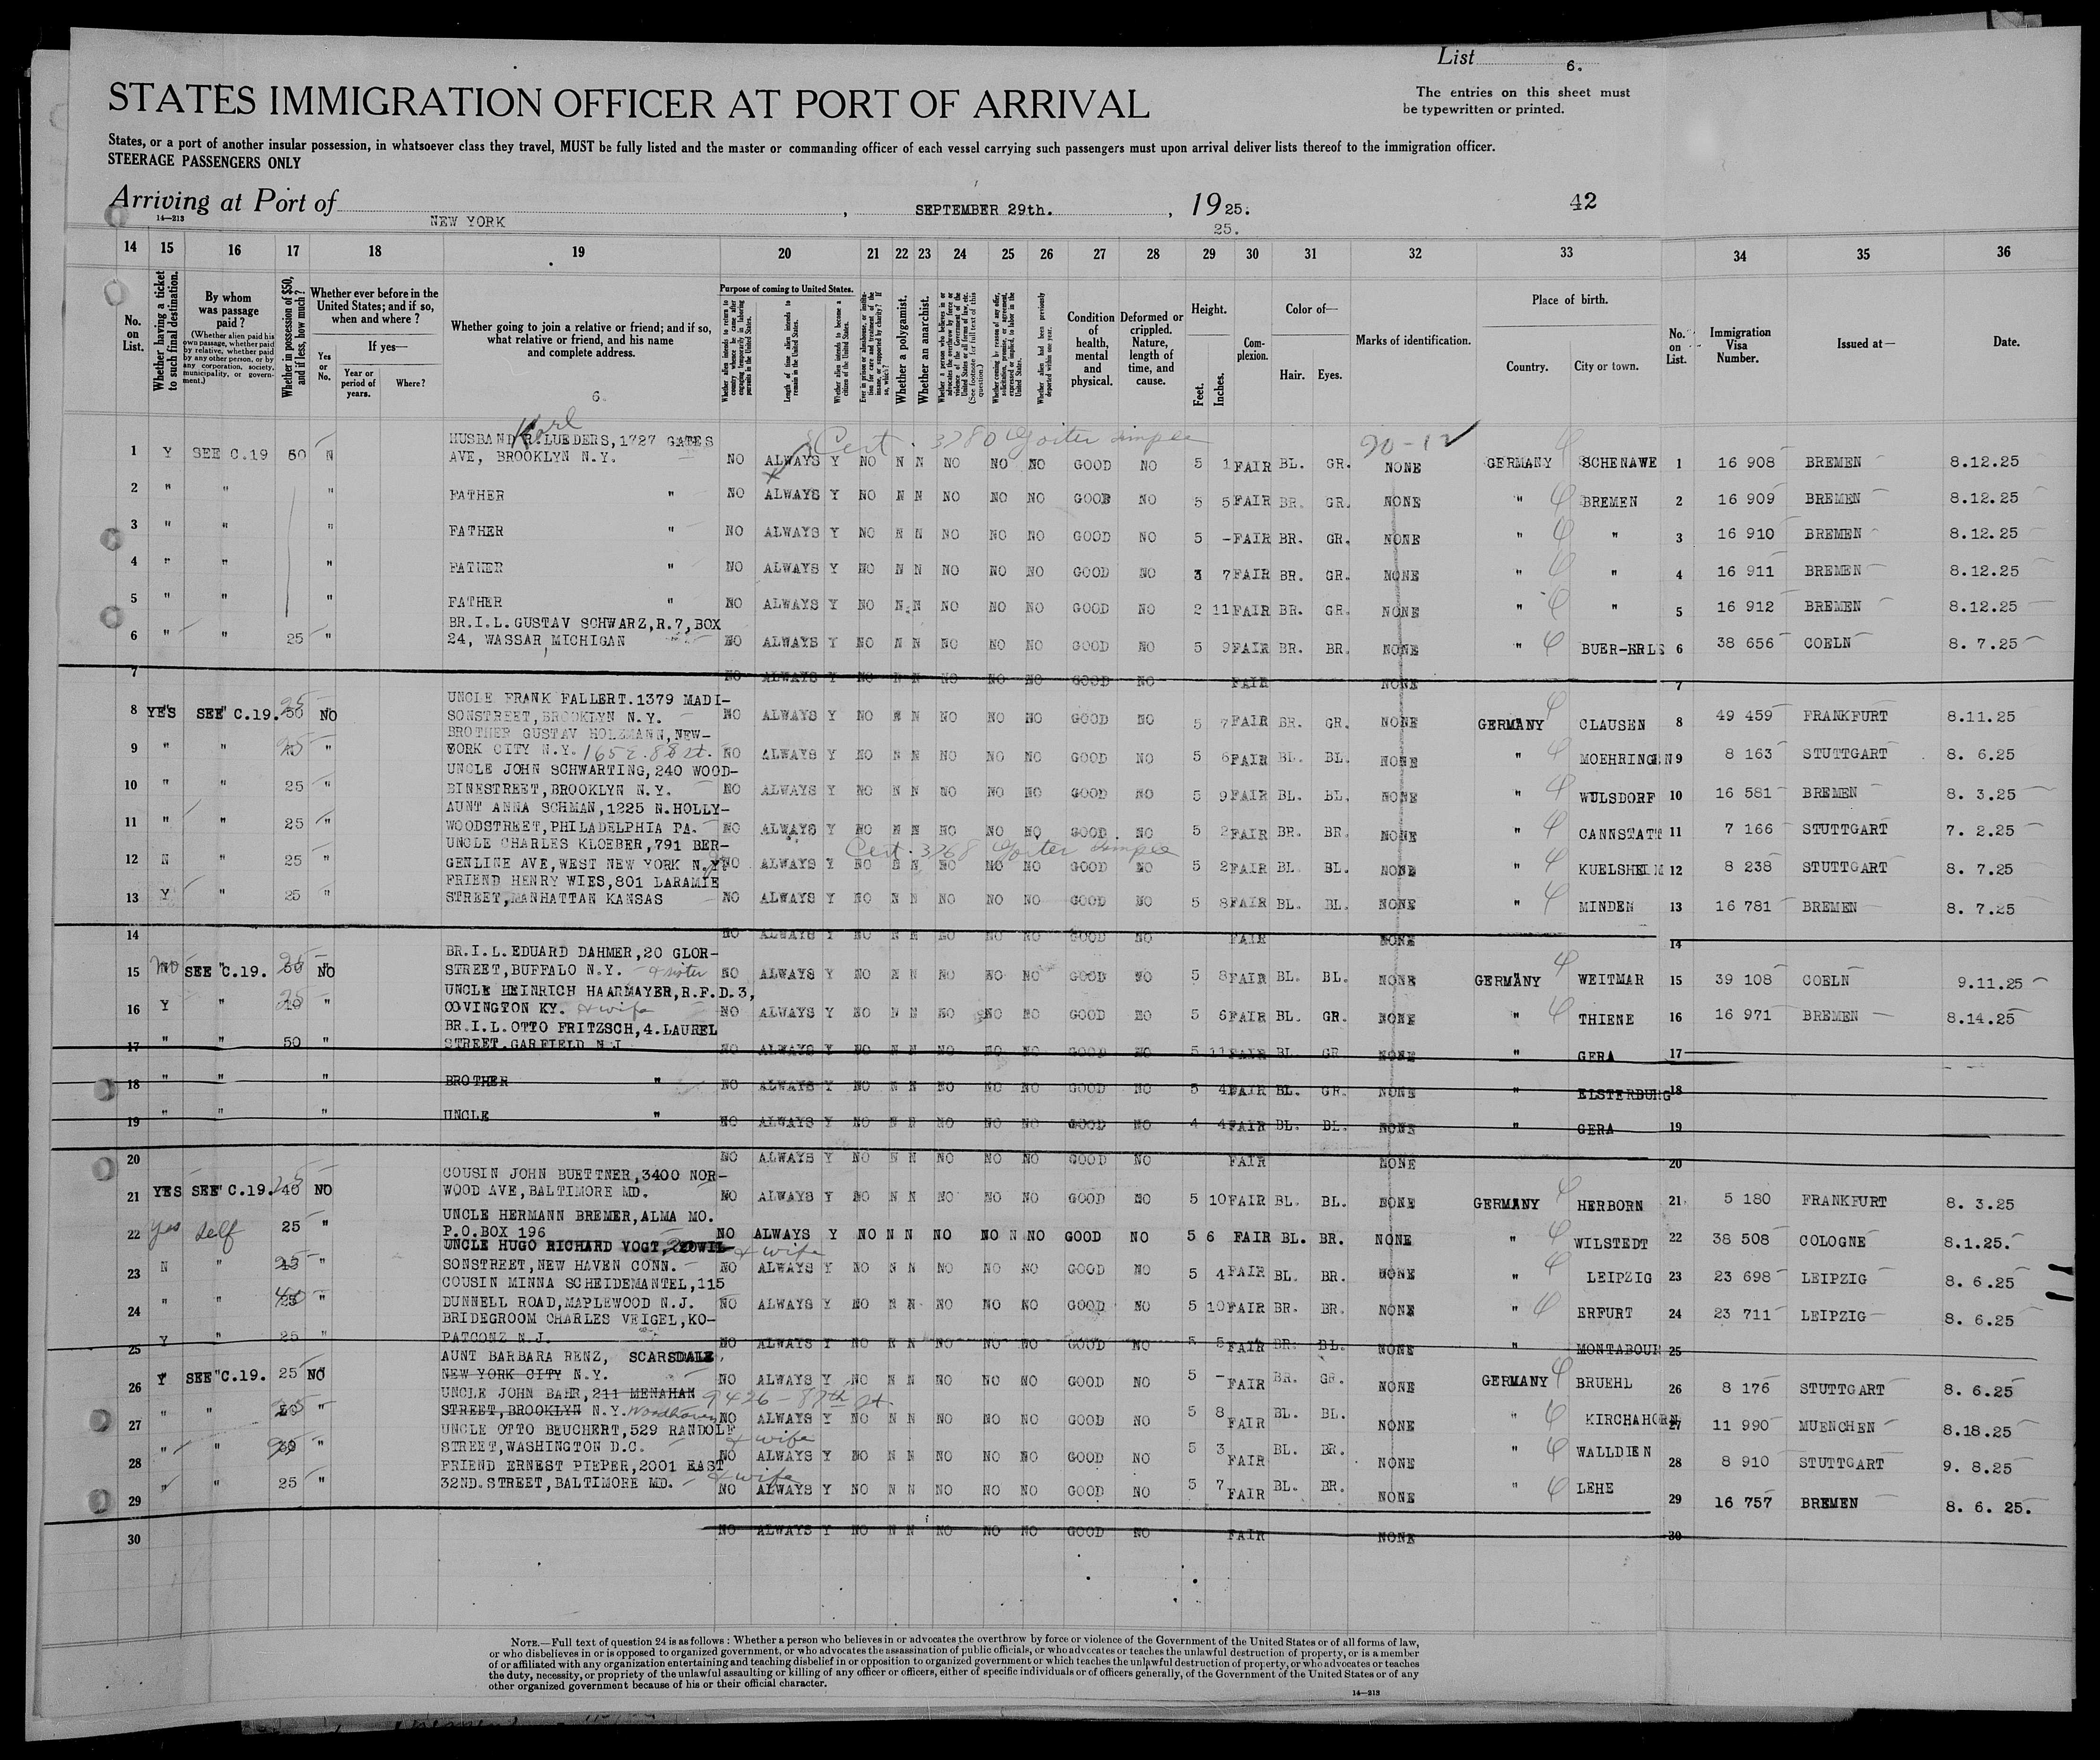 List 6.
The entries on this sheet must
be typewritten or printed.
STATES IMMIGRATION OFFICER AT PORT OF ARRIVAL
States, or a port of another insular possession, in whatsoever class they travel, MUST be fully listed and the master or commanding officer of each vessel carrying such passengers must upon arrival deliver lists thereof to the immigration officer.
STEERAGE PASSENGERS ONLY
Arriving at Port of NEW YORK, SEPTEMBER 29th., 1925. 42
14—213
25.
14 15 16 17 18 19 20 21 22 23 24 25 26 27 28 29 30 31 32 33 34 35 36
No. on List.
Whether having a ticket to such final destination.
By whom was passage paid?
(Whether alien paid his own passage, whether paid by relative, whether paid by any other person, or by any corporation, society, municipality, or government.)
Whether in possession of $50, and if less, how much?
Whether ever before in the United States; and if so, when and where?
If yes—
Yes or No.
Year or period of years.
Where?
Whether going to join a relative or friend; and if so, what relative or friend, and his name and complete address.
6.
Purpose of coming to United States.
Whether alien intends to return to country whence he came after engaging temporarily in laboring pursuits in the United States.
Length of time alien intends to remain in the United States.
Whether alien intends to become a citizen of the United States.
Ever in prison or almshouse, or institution for care and treatment of the insane, or supported by charity? If so, which?
Whether a polygamist.
Whether an anarchist.
Whether a person who believes in or advocates the overthrow by force or violence of the Government of the United States or all forms of law, etc. (See footnote for full text of this question.)
Whether coming by reason of any offer, solicitation, promise, or agreement, expressed or implied, to labor in the United States.
Whether alien had been previously deported within one year.
Condition of health, mental and physical.
Deformed or crippled. Nature, length of time, and cause.
Height.
Feet. Inches.
Complexion.
Color of—
Hair. Eyes.
Marks of identification.
Place of birth.
Country. City or town.
No. on List.
Immigration Visa Number.
Issued at—
Date.
Karl
Cert. 3780 Goiter simple
HUSBAND K.LUEDERS,1727 GATES
1 Y SEE C.19 50 N AVE, BROOKLYN N.Y. NO ALWAYS Y NO N N NO NO NO GOOD NO 5 1 FAIR BL. GR. NONE GERMANY SCHENAWE 1 16 908 BREMEN 8.12.25
2 " " " FATHER " NO ALWAYS Y NO N N NO NO NO GOOD NO 5 5 FAIR BR. GR. NONE " BREMEN 2 16 909 BREMEN 8.12.25
3 " " " FATHER " NO ALWAYS Y NO N N NO NO NO GOOD NO 5 - FAIR BR. GR. NONE " " 3 16 910 BREMEN 8.12.25
4 " " " FATHER " NO ALWAYS Y NO N N NO NO NO GOOD NO 3 7 FAIR BR. GR. NONE " " 4 16 911 BREMEN 8.12.25
5 " " " FATHER " NO ALWAYS Y NO N N NO NO NO GOOD NO 2 11 FAIR BR. GR. NONE " " 5 16 912 BREMEN 8.12.25
BR.I.L.GUSTAV SCHWARZ,R.7,BOX
6 " " 25 " 24, WASSAR MICHIGAN NO ALWAYS Y NO N N NO NO NO GOOD NO 5 9 FAIR BR. BR. NONE " BUER-ERLS 6 38 656 COELN 8. 7.25
7 NO ALWAYS Y NO N N NO NO NO GOOD NO FAIR NONE 7
UNCLE FRANK FALLERT.1379 MADI-
8 YES SEE C.19. 25 NO SONSTREET,BROOKLYN N.Y. NO ALWAYS Y NO N N NO NO NO GOOD NO 5 7 FAIR BR. GR. NONE GERMANY CLAUSEN 8 49 459 FRANKFURT 8.11.25
BROTHER GUSTAV HOLZMANN,NEW-
9 " " " YORK CITY N.Y. 165 E. 88 St. NO ALWAYS Y NO N N NO NO NO GOOD NO 5 6 FAIR BL. BL. NONE " MOEHRINGEN 9 8 163 STUTTGART 8. 6.25
UNCLE JOHN SCHWARTING,240 WOOD-
10 " " 25 " BINESTREET,BROOKLYN N.Y. NO ALWAYS Y NO N N NO NO NO GOOD NO 5 9 FAIR BL. BL. NONE " WULSDORF 10 16 581 BREMEN 8. 3.25
AUNT ANNA SCHMAN,1225 N.HOLLY-
11 " " 25 " WOODSTREET,PHILADELPHIA PA. NO ALWAYS Y NO N N NO NO NO GOOD NO 5 2 FAIR BR. BR. NONE " CANNSTATT 11 7 166 STUTTGART 7. 2.25
Cert. 3768 Goiter simple
UNCLE CHARLES KLOEBER,791 BER-
12 N " 25 " GENLINE AVE,WEST NEW YORK N.Y. NO ALWAYS Y NO N N NO NO NO GOOD NO 5 2 FAIR BL BL. NONE " KUELSHEIM 12 8 238 STUTTGART 8. 7.25
FRIEND HENRY WIES,801 LARAMIE
13 Y " 25 " STREET,MANHATTAN KANSAS NO ALWAYS Y NO N N NO NO NO GOOD NO 5 8 FAIR BL. BL. NONE " MINDEN 13 16 781 BREMEN 8. 7.25
14 NO ALWAYS Y NO N N NO NO NO GOOD NO FAIR NONE 14
BR.I.L.EDUARD DAHMER,20 GLOR-
15 NO SEE C.19. NO STREET,BUFFALO N.Y. & sister NO ALWAYS Y NO N N NO NO NO GOOD NO 5 8 FAIR BL. BL. NONE GERMANY WEITMAR 15 39 108 COELN 9.11.25
UNCLE HEINRICH HAARMAYER,R.F.D.3,
16 Y " " COVINGTON KY. & wife NO ALWAYS Y NO N N NO NO NO GOOD NO 5 6 FAIR BL. GR. NONE " THIENE 16 16 971 BREMEN 8.14.25
BR.I.L.OTTO FRITZSCH,4.LAUREL
17 " " 50 " STREET.GARFIELD N.J. NO ALWAYS Y NO N N NO NO NO GOOD NO 5 11 FAIR BL GR NONE " GERA 17
18 " " " BROTHER " NO ALWAYS Y NO N N NO NO NO GOOD NO 5 4 FAIR BL. GR. NONE " ELSTERBURG 18
19 " " " UNCLE " NO ALWAYS Y NO N N NO NO NO GOOD NO 4 4 FAIR BL. BL. NONE " GERA 19
20 NO ALWAYS Y NO N N NO NO NO GOOD NO FAIR NONE 20
COUSIN JOHN BUETTNER,3400 NOR-
21 YES SEE C.19. 40 NO WOOD AVE,BALTIMORE MD. NO ALWAYS Y NO N N NO NO NO GOOD NO 5 10 FAIR BL. BL. NONE GERMANY HERBORN 21 5 180 FRANKFURT 8. 3.25
UNCLE HERMANN BREMER,ALMA MO.
22 yes self 25 " P.O.BOX 196 NO ALWAYS Y NO N N NO NO N NO GOOD NO 5 6 FAIR BL. BR. NONE " WILSTEDT 22 38 508 COLOGNE 8.1.25.
UNCLE HUGO RICHARD VOGT, WIL- & wife
23 N " " SONSTREET,NEW HAVEN CONN. NO ALWAYS Y NO N N NO NO NO GOOD NO 5 4 FAIR BL. BR. NONE " LEIPZIG 23 23 698 LEIPZIG 8. 6.25
COUSIN MINNA SCHEIDEMANTEL,115
24 " " " DUNNELL ROAD,MAPLEWOOD N.J. NO ALWAYS Y NO N N NO NO NO GOOD NO 5 10 FAIR BR. BR. NONE " ERFURT 24 23 711 LEIPZIG 8. 6.25
BRIDEGROOM CHARLES VEIGEL,KO-
25 Y " 25 " PATCONZ N.J. NO ALWAYS Y NO N N NO NO NO GOOD NO 5 5 FAIR BR. BL. NONE " MONTABOUR 25
AUNT BARBARA RENZ, SCARSDALE,
26 Y SEE C.19. 25 NO NEW YORK CITY N.Y. NO ALWAYS Y NO N N NO NO NO GOOD NO 5 - FAIR BR. GR. NONE GERMANY BRUEHL 26 8 176 STUTTGART 8. 6.25
UNCLE JOHN BAHR,211 MENAHAN 9426-87th St.
27 " " " STREET,BROOKLYN N.Y. Woodhaven NO ALWAYS Y NO N N NO NO NO GOOD NO 5 8 FAIR BL. BL. NONE " KIRCHAHORN 27 11 990 MUENCHEN 8.18.25
UNCLE OTTO BEUCHERT,529 RANDOLF & wife
28 " " " STREET,WASHINGTON D.C. NO ALWAYS Y NO N N NO NO NO GOOD NO 5 3 FAIR BL. BR. NONE " WALLDIEN 28 8 910 STUTTGART 9. 8.25
FRIEND ERNEST PIEPER,2001 EAST & wife
29 " " 25 " 32ND.STREET,BALTIMORE MD. NO ALWAYS Y NO N N NO NO NO GOOD NO 5 7 FAIR BL. BR. NONE " LEHE 29 16 757 BREMEN 8. 6. 25.
30 NO ALWAYS Y NO N N NO NO NO GOOD NO FAIR NONE 30
NOTE.—Full text of question 24 is as follows: Whether a person who believes in or advocates the overthrow by force or violence of the Government of the United States or of all forms of law,
or who disbelieves in or is opposed to organized government, or who advocates the assassination of public officials, or who advocates or teaches the unlawful destruction of property, or is a member
of or affiliated with any organization entertaining and teaching disbelief in or opposition to organized government or which teaches the unlawful destruction of property, or who advocates or teaches
the duty, necessity, or propriety of the unlawful assaulting or killing of any officer or officers, either of specific individuals or of officers generally, of the Government of the United States or of any
other organized government because of his or their official character.
14—213